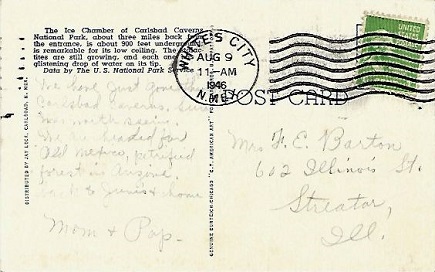 The Ice Chamber of Carlsbad Caverns
National Park, about three miles back from
the entrance, is about 900 feet underground,
is remarkable for its low ceiling. The
tites are still growing, and each
glistening drop of water on its tip.
Data by The U. S. National Park Service
WHITE'S CITY
AUG 9
11-AM
1946
N.MEX.
UNITED STATES
POST CARD
We have just gone thru
Carlsbad Caverns,
was worth seeing.
headed for
Old Mexico, petrified
forest in Arizona
& home
Mom & Pop.
Mrs F. E. Barton
602 Illinois St.
Streator,
Ill.
DISTRIBUTED BY JAY LECK, CARLSBAD, N. MEX.
GENUINE CURTEICH-CHICAGO "C.T. AMERICAN ART"